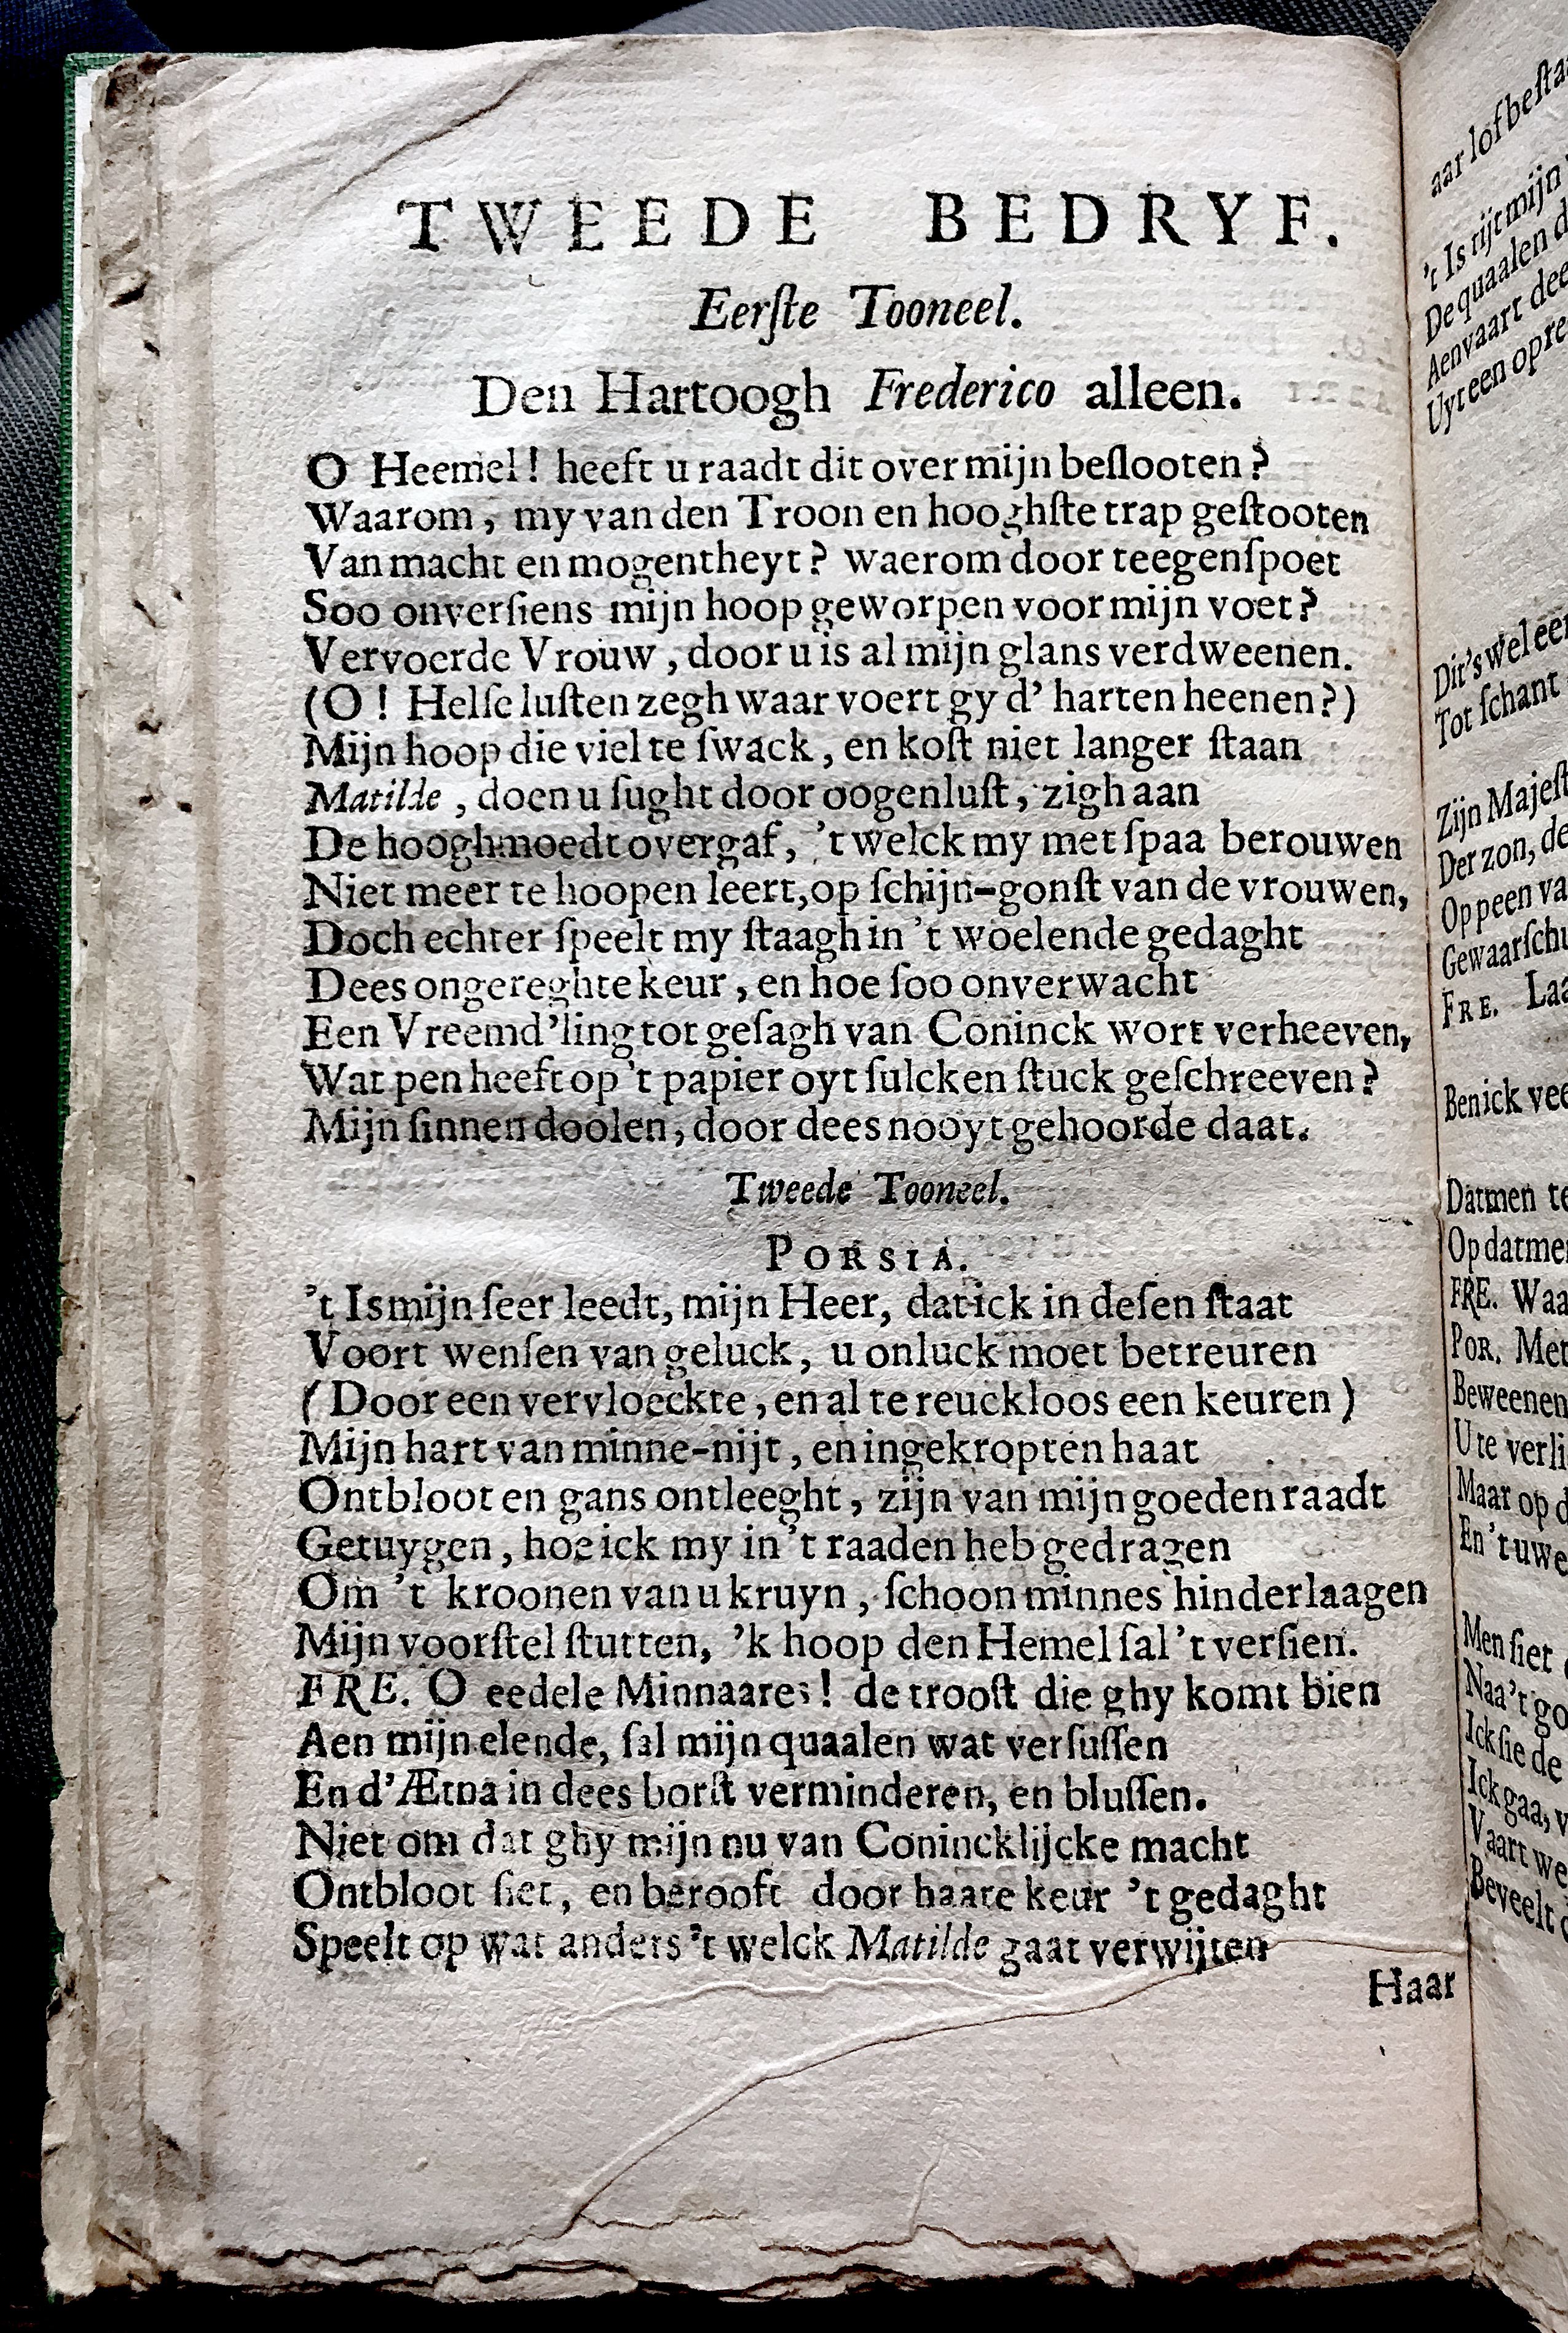 TWEEDE BEDRYF.
Eerſte Tooneel.
Den Hartoogh Frederico alleen.
O Heemel! heeft u raadt dit over mijn beſlooten?
Waarom, my van den Troon en hooghſte trap geſtooten
Van macht en mogentheyt? waerom door teegenſpoet
Soo onverſiens mijn hoop geworpen voor mijn voet?
Vervoerde Vrouw, door u is al mijn glans verdweenen.
(O! Helſe luſten zegh waar voert gy d' harten heenen?)
Mijn hoop die viel te ſwack, en koſt niet langer ſtaan
Matilde, doen u ſught door oogenluſt, zigh aan
De hooghmoedt overgaf, 't welck my met ſpaa berouwen
Niet meer te hoopen leert, op ſchijn-gonſt van de vrouwen,
Doch echter ſpeelt my ſtaagh in 't woelende gedaght
Dees ongereghte keur, en hoe ſoo onverwacht
Een Vreemd'ling tot geſagh van Coninck wort verheeven,
Wat pen heeft op 't papier oyt ſulcken ſtuck geſchreeven?
Mijn ſinnen doolen, door dees nooyt gehoorde daat.
Tweede Tooneel.
PORSIA.
't Is mijn ſeer leedt, mijn Heer, dat ick in deſen ſtaat
Voort wenſen van geluck, u onluck moet betreuren
(Door een vervloeckte, en al te reuckloos een keuren)
Mijn hart van minne-nijt, en ingekropten haat
Ontbloot en gans ontleeght, zijn van mijn goeden raadt
Getuygen, hoe ick my in 't raaden heb gedragen
Om 't kroonen van u kruyn, ſchoon minnes hinderlaagen
Mijn voorſtel ſtutten, 'k hoop den Hemel ſal 't verſien.
FRE. O eedele Minnaares! de trooſt die ghy komt bien
Aen mijn elende, ſal mijn quaalen wat verſuſſen
En d'Ætna in dees borſt verminderen, en bluſſen.
Niet om dat ghy mijn nu van Conincklijcke macht
Ontbloot ſiet, en berooft door haare keur 't gedaght
Speelt op wat anders 't welck Matilde gaat verwijten
Haar
aar lof beſta
't Is tijt mijn
De quaalen d
Aenvaart dee
Uyt een opre
Dit's wel eer
Tot ſchant
Zijn Majeſt
Der zon, de
Op peen va
Gewaarſchu
FRE. Laa
Ben ick vee
Datmen te
Op datmen
FRE. Waa
POR. Met
Beweenen
U te verli
Maar op d
En 't uwe
Men ſiet
Naa 't go
Ick ſie de
Ick gaa, v
Vaart we
Beveelt d